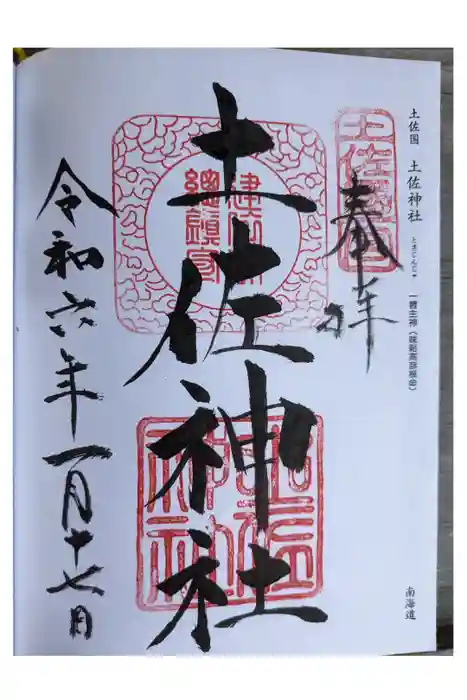 土佐国 土佐神社 とさじんじゃ 一言主神（味鋤高彦根命）
南海道
奉拝
土佐神社
令和六年一月十七日
土佐神社